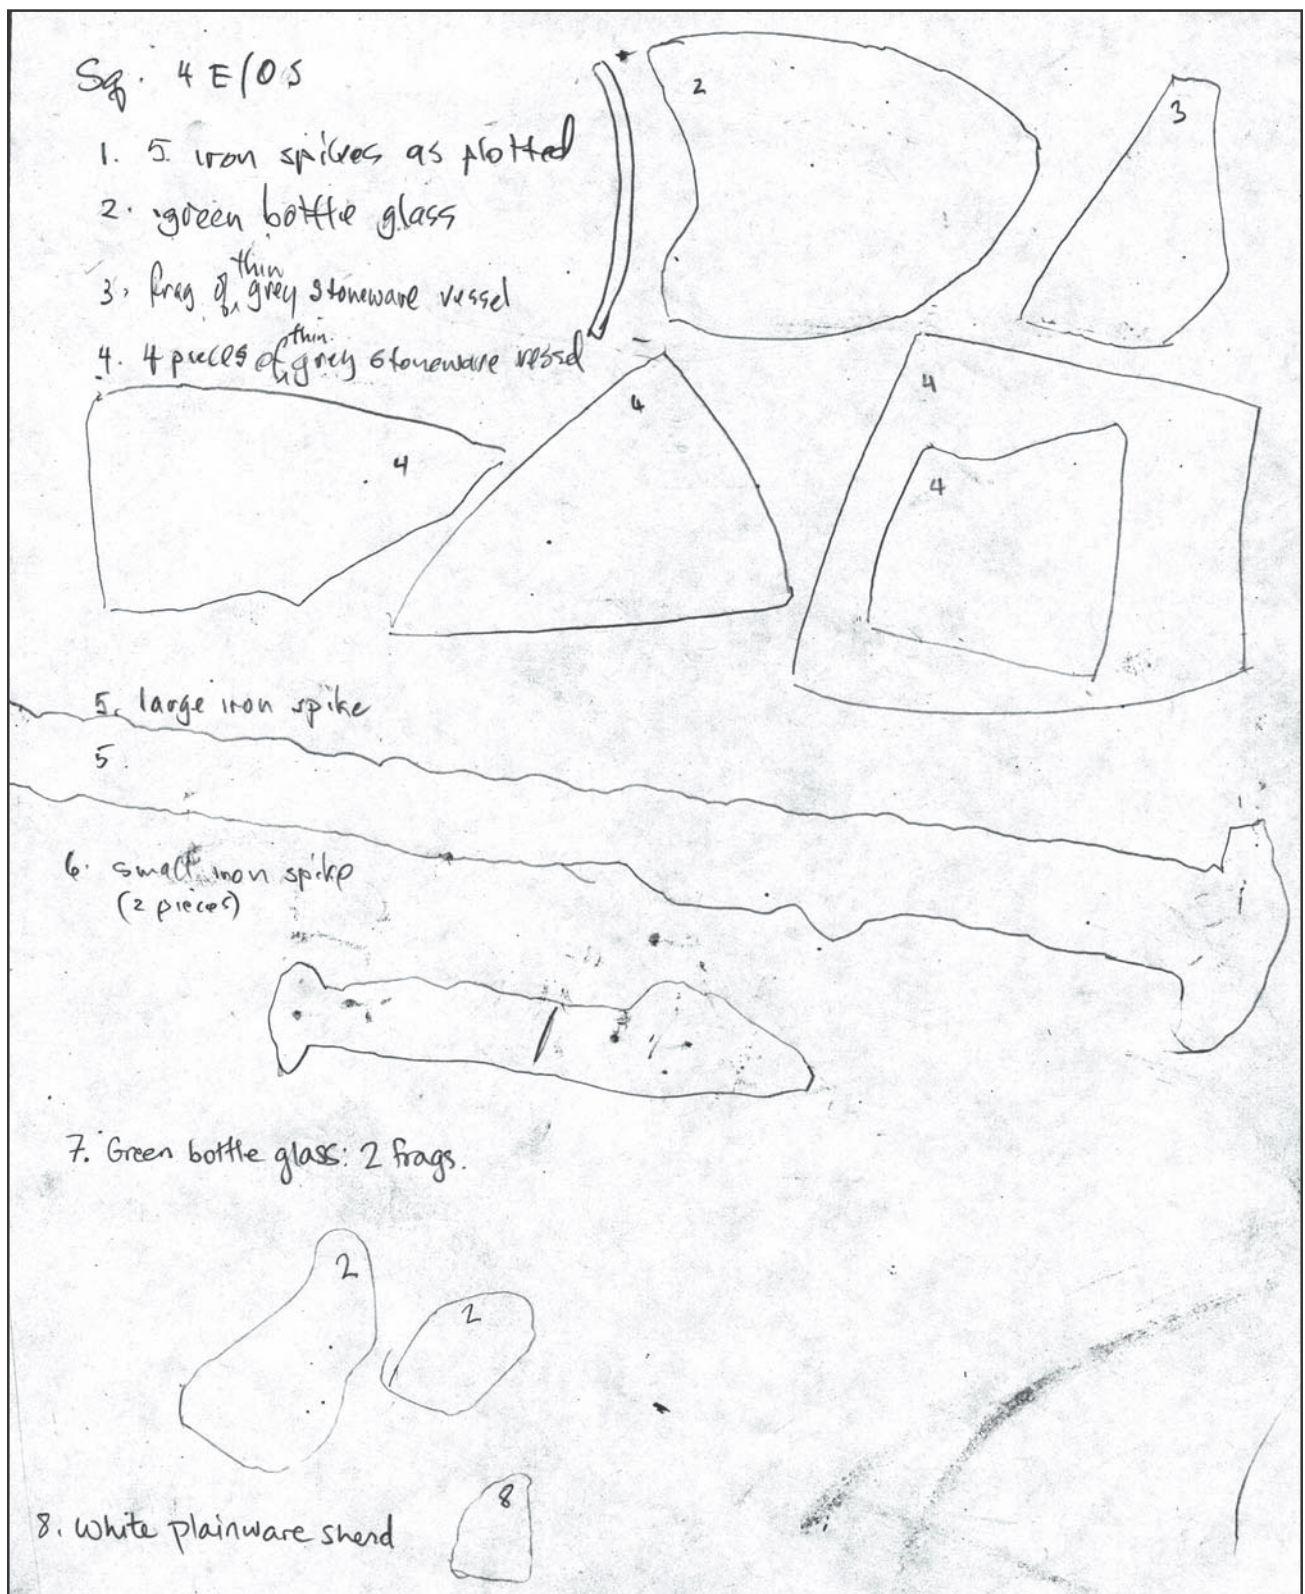 Sq. 4 E/0S
1. 5 iron spikes as plotted
2. green bottle glass
3. frag of thin grey stoneware vessel
4. 4 pieces of thin grey stoneware vessel
2
3
4
4
4
4
5. large iron spike
5
6. small iron spike
(2 pieces)
7. Green bottle glass: 2 frags.
2
2
8
8. white plainware sherd